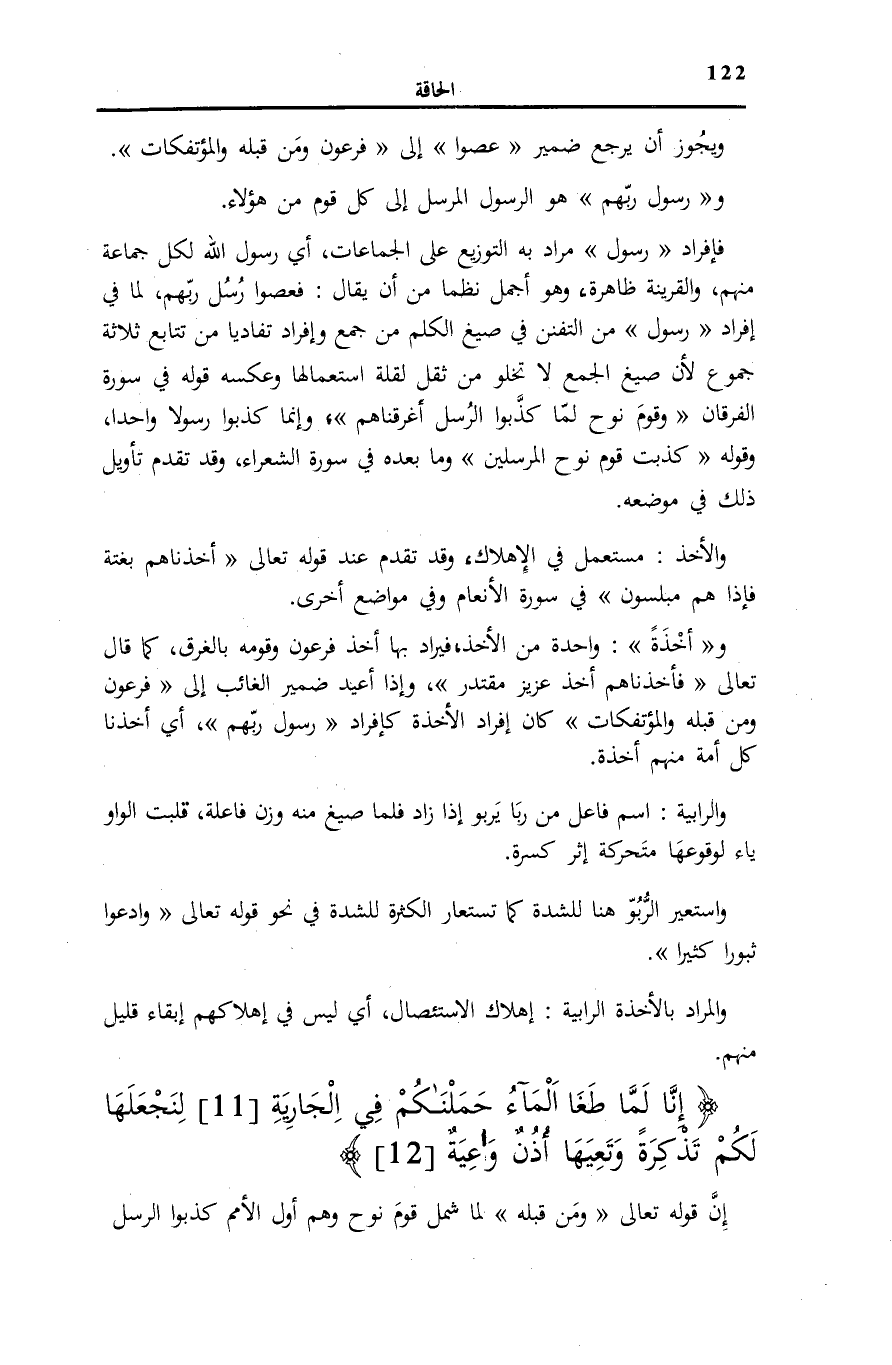 122
الحاقة
ويجُوز أن يرجع ضمير « عصوا » إلى « فرعون ومَن قبله والمؤتفكات ».
و« رسول ربّهم » هو الرسول المرسل إلى كل قوم من هؤلاء.
فإفراد « رسول » مراد به التوزيع على الجماعات، أي رسول الله لكل جماعة
منهم، والقرينة ظاهرة، وهو أجمل نظما من أن يقال : فعصوا رُسُل ربّهم، لما في
إفراد « رسول » من التفنن في صيغ الكلم من جمع وإفراد تفاديا من تتابع ثلاثة
جموع لأن صيغ الجمع لا تخلو من ثقل لقلة استعمالها وعكسه قوله في سورة
الفرقان « وقومَ نوح لمّا كذَّبوا الرُسل أغرقناهم »، وإنما كذبوا رسولا واحدا،
وقوله « كذبت قوم نوح المرسلين » وما بعده في سورة الشعراء، وقد تقدم تأويل
ذلك في موضعه.
والأخذ : مستعمل في الإهلاك، وقد تقدم عند قوله تعالى « أخذناهم بغتة
فإذا هم مبلسون » في سورة الأنعام وفي مواضع أخرى.
و« أخْذَةً » : واحدة من الأخذ، فيراد بها أخذ فرعون وقومه بالغرق، كما قال
تعالى « فأخذناهم أخذ عزيز مقتدر »، وإذا أعيد ضمير الغائب إلى « فرعون
ومن قبله والمؤتفكات » كان إفراد الأخذة كإفراد « رسول ربّهم »، أي أخذنا
كل أمة منهم أخذة.
والرابية : اسم فاعل من ربَا يَربو إذا زاد فلما صيغ منه وزن فاعلة، قلبت الواو
ياء لوقوعهَا متَحركة إثر كسرة.
واستعير الرُّبُوّ هنا للشدة كما تستعار الكثرة للشدة في نحو قوله تعالى « وادعوا
ثبورا كثيرا ».
والمراد بالأخذة الرابية : إهلاك الاستئصال، أي ليس في إهلاكهم إبقاء قليل
منهم.
﴿ إِنَّا لَمَّا طَغَا اَلْمَآءُ حَمَلْنَـٰكُمْ فِي اِلْجَارِيَةِ [11] لِنَجْعَلَهَا
لَكُمْ تَذْكِرَةً وَتَعِيَهَا أُذُنٌ وَٰعِيَةٌ [12] ﴾
إنَّ قوله تعالى « ومَن قبله » لما شمل قومَ نوح وهم أول الأمم كذبوا الرسل